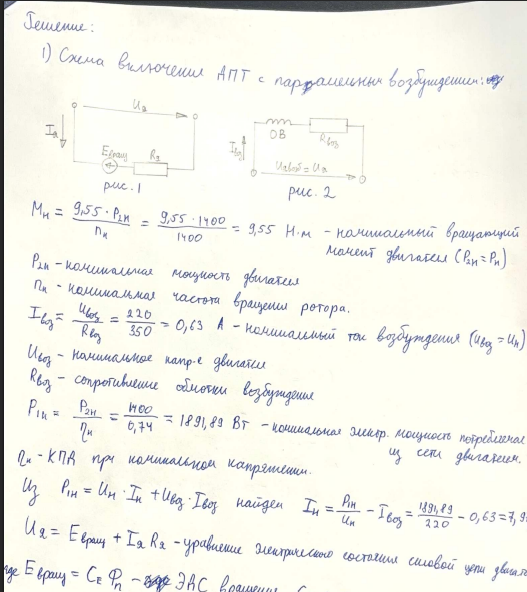 Решение:
1) Схема включения ДПТ с параллельным возбуждением:
Uя
Iя
Eвращ Rя
рис. 1
Iвоз
ОВ Rвоз
Uя
рис. 2
Mн = 9,55 · P2н / nн = 9,55 · 1400 / 1400 = 9,55 Н·м - номинальный вращающий
момент двигателя (P2н = Pн)
P2н - номинальная мощность двигателя
nн - номинальная частота вращения ротора.
Iвоз = Uвоз / Rвоз = 220 / 350 = 0,63 А - номинальный ток возбуждения (Uвоз = Uн)
Uвоз - номинальное напр-е двигателя
Rвоз - сопротивление обмотки возбуждения
P1н = P2н / ηн = 1400 / 0,74 = 1891,89 Вт - номинальная электр. мощность потребляемая
из сети двигателем.
ηн - КПД при номинальном напряжении.
Из P1н = Uн · Iн + Uвоз · Iвоз найдем Iн = P1н / Uн - Iвоз = 1891,89 / 220 - 0,63 = 7,9
Uя = Eвращ + Iя Rя - уравнение электрического состояния силовой цепи
где Eвращ = CE Φn - ЭДС вращения